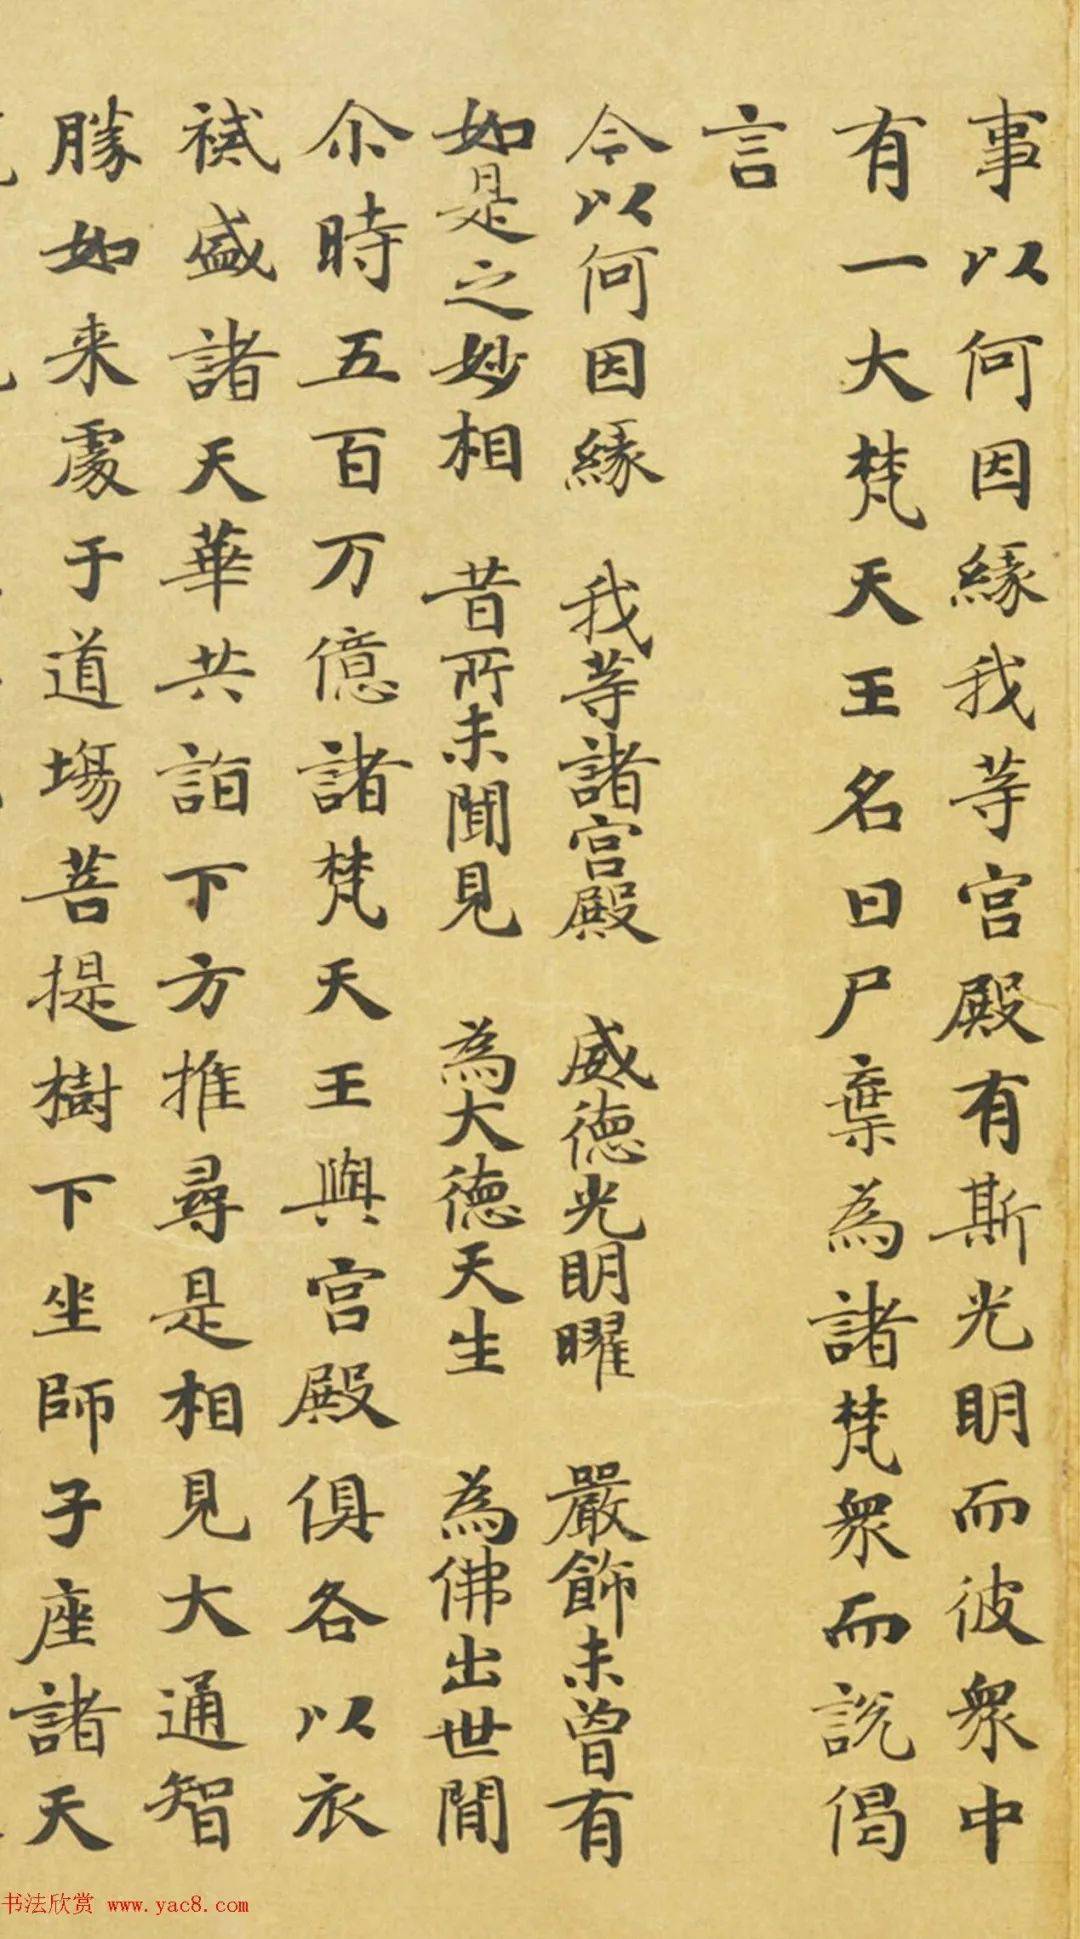 事以何因緣我等宮殿有斯光明而彼眾中
有一大梵天王名曰尸棄為諸梵眾而說偈
言
今以何因緣 我等諸宮殿 威德光明曜 嚴飾未曾有
如是之妙相 昔所未聞見 為大德天生 為佛出世間
尒時五百万億諸梵天王與宮殿俱各以衣
祴盛諸天華共詣下方推尋是相見大通智
勝如来處于道場菩提樹下坐師子座諸天
书法欣赏 www.yac8.com